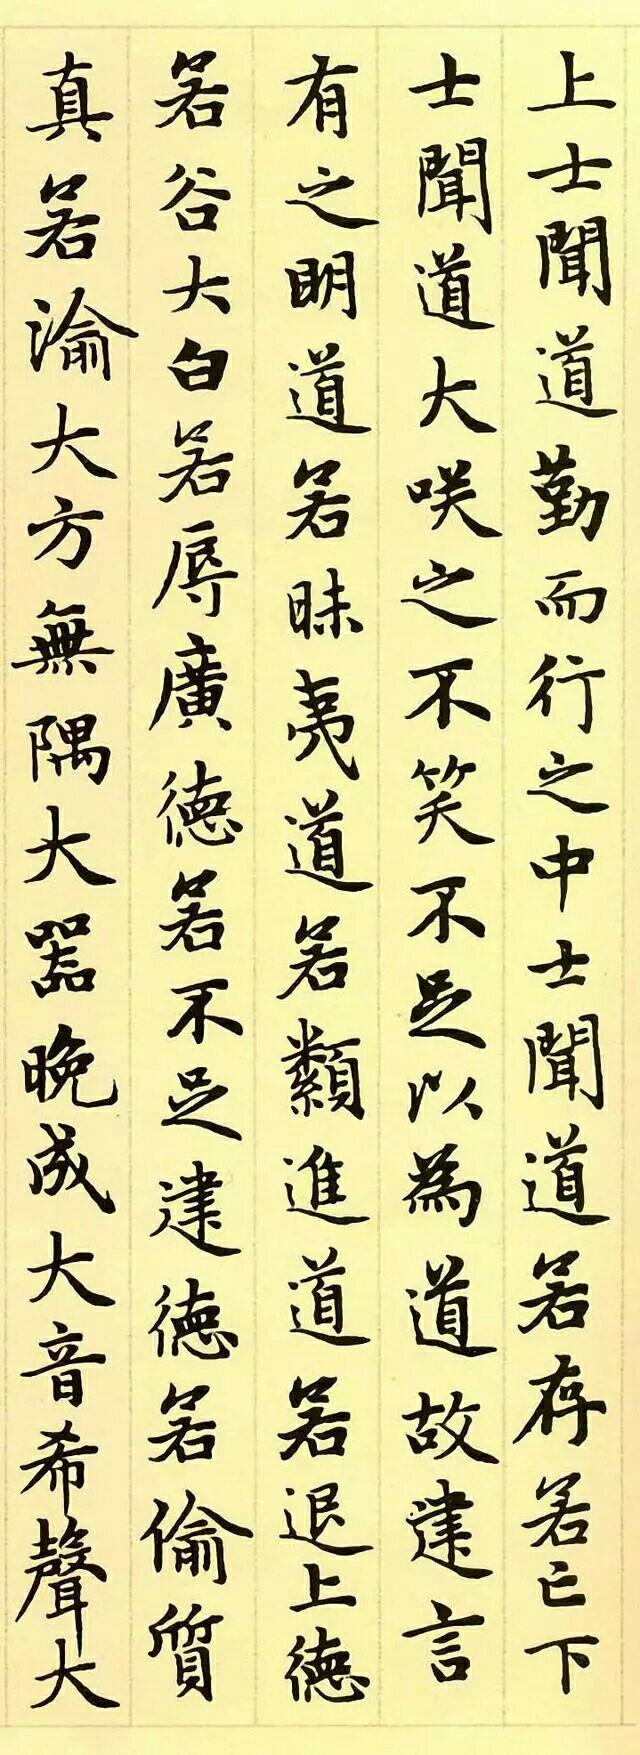 上士聞道勤而行之中士聞道若存若亡下
士聞道大咲之不笑不足以為道故建言
有之明道若昧夷道若纇進道若退上德
若谷大白若辱廣德若不足建德若偷質
真若渝大方無隅大器晚成大音希聲大